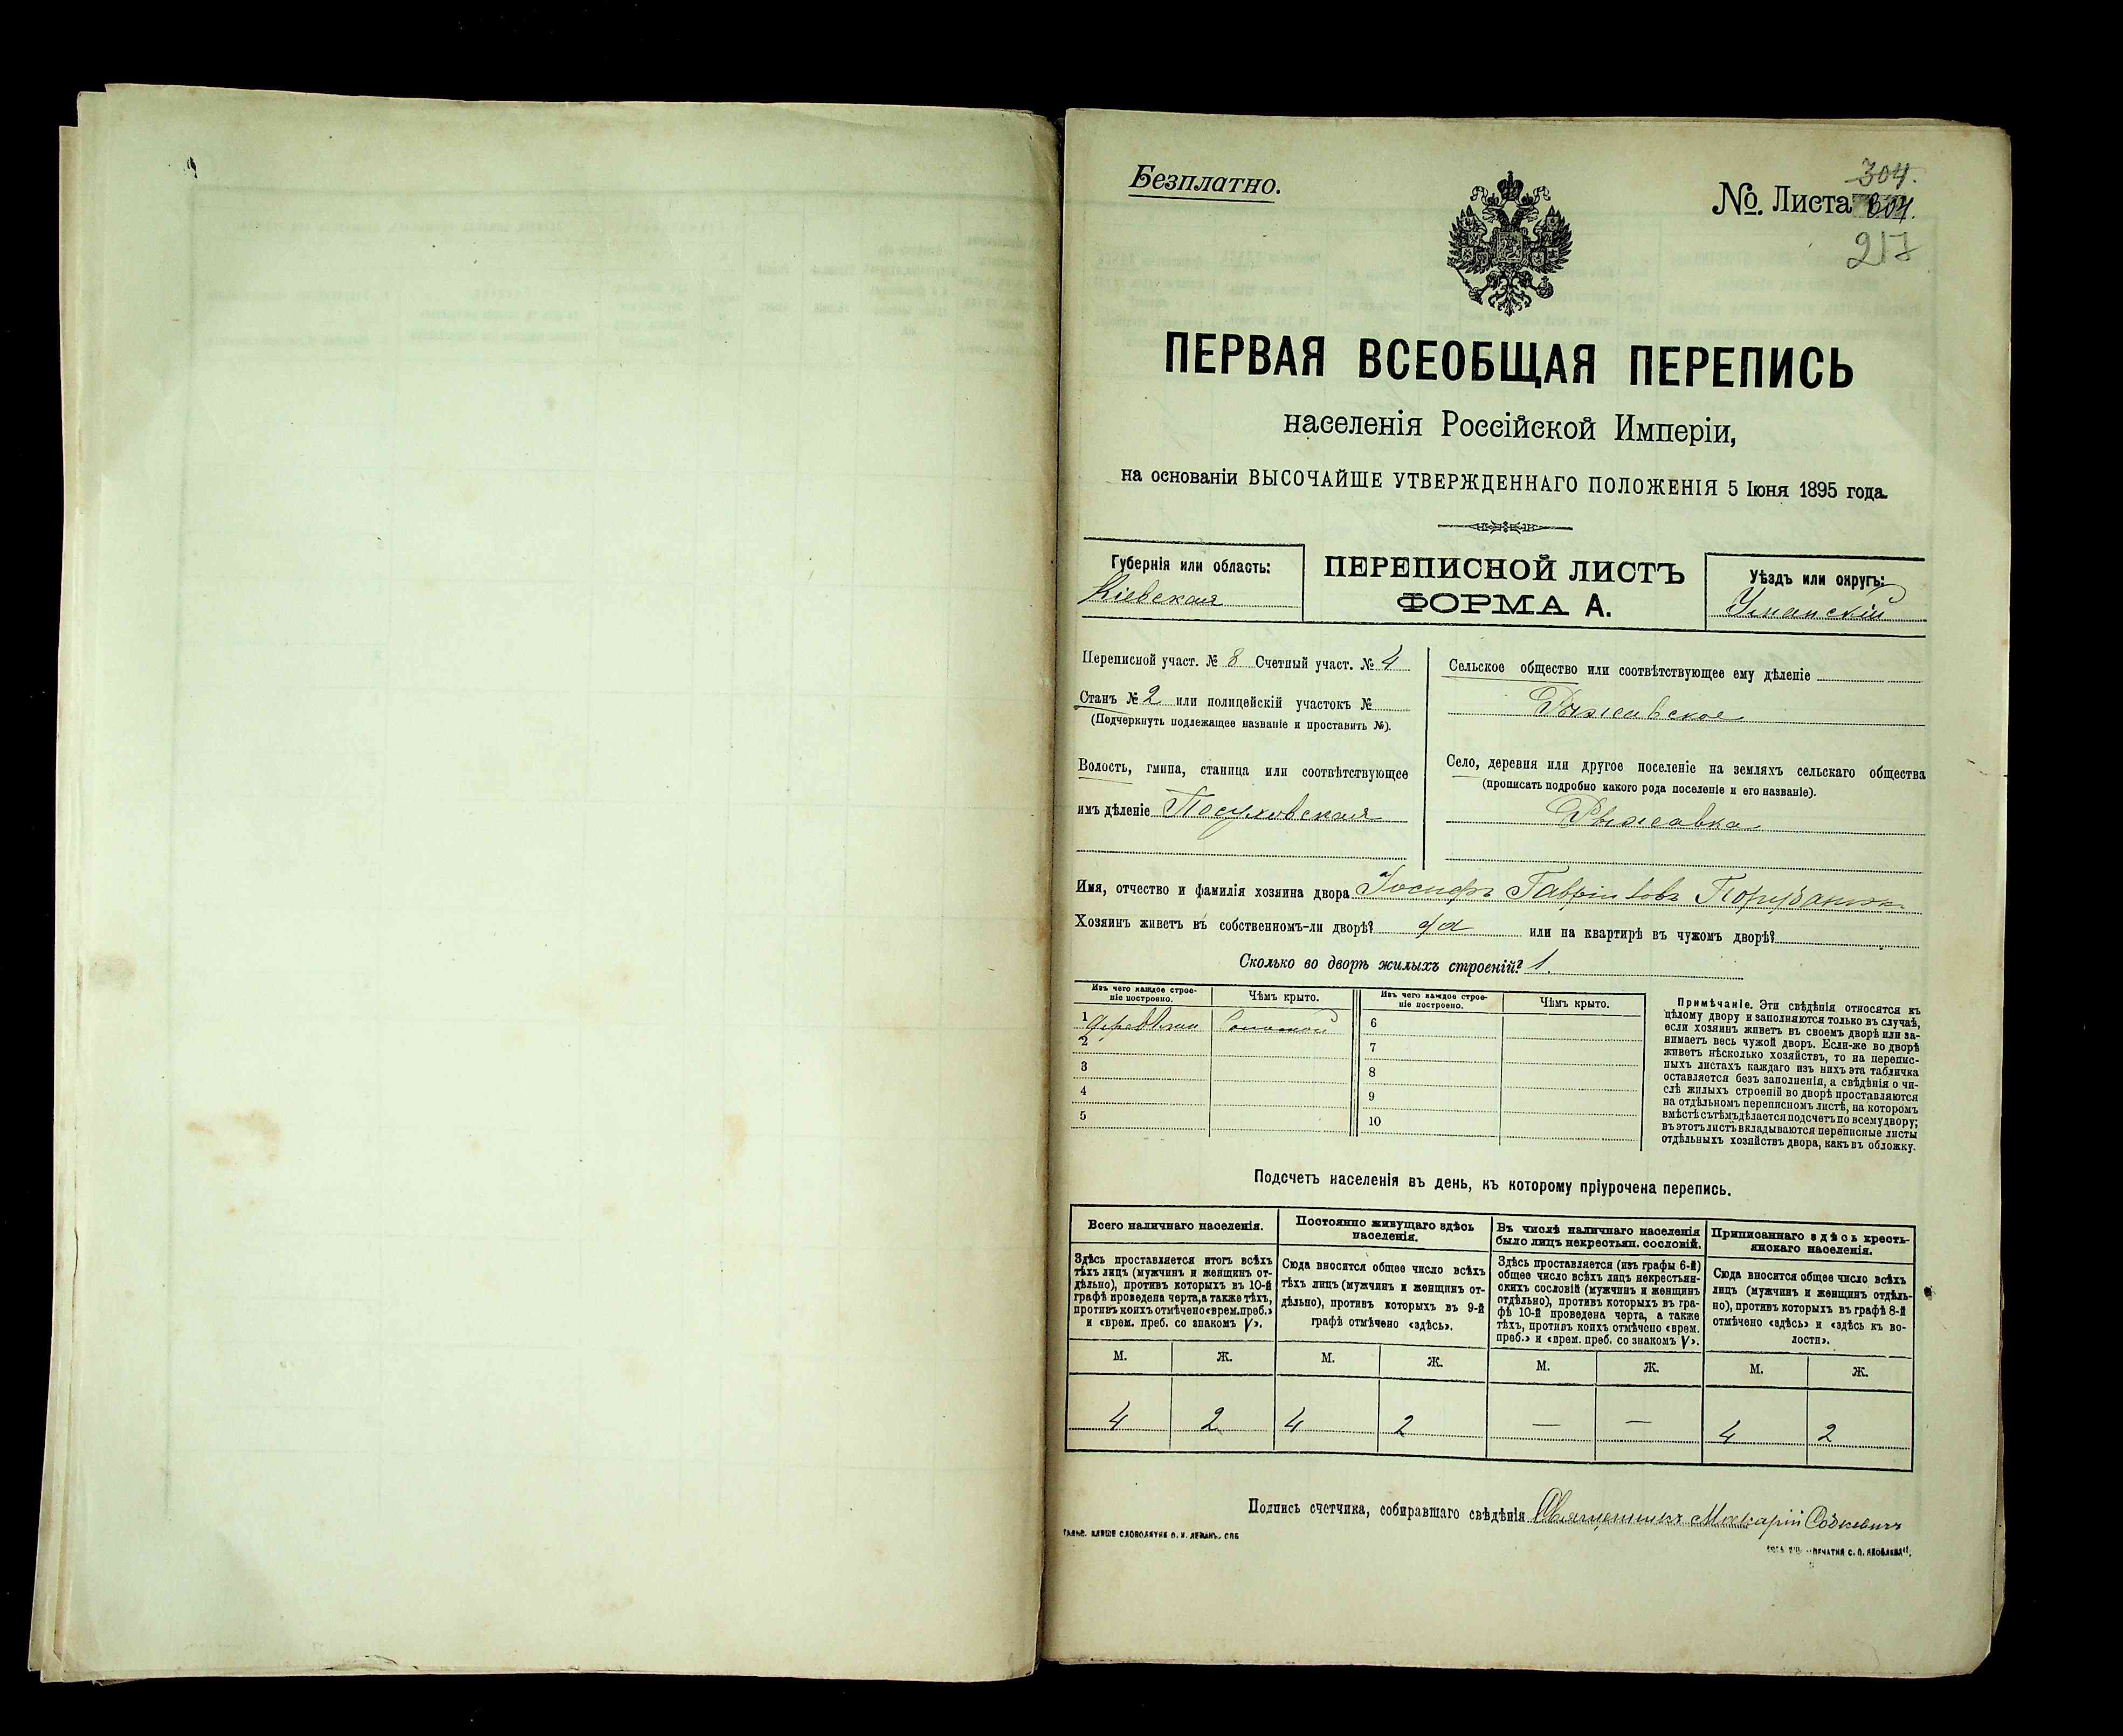 Безплатно.
304.
№. Листа 304.
217
ПЕРВАЯ ВСЕОБЩАЯ ПЕРЕПИСЬ
населенія Россійской Имперіи,
на основаніи ВЫСОЧАЙШЕ УТВЕРЖДЕННАГО ПОЛОЖЕНІЯ 5 Іюня 1895 года.
Губернія или область:
Кіевская
ПЕРЕПИСНОЙ ЛИСТЪ
ФОРМА А.
Уѣздъ или округъ:
Уманскій
Переписной участ. № 8 Счетный участ. № 4
Станъ № 2 или полицейскій участокъ №
(Подчеркнуть подлежащее названіе и проставить №).
Волость, гмина, станица или соотвѣтствующее
имъ дѣленіе Посуховская
Сельское общество или соотвѣтствующее ему дѣленіе
Рыжавское
Село, деревня или другое поселеніе на земляхъ сельскаго общества
(прописать подробно какого рода поселеніе и его названіе).
Рыжавка
Имя, отчество и фамилія хозяина двора Іосифъ Гавріиловъ
Хозяинъ живетъ въ собственномъ-ли дворѣ? да или на квартирѣ въ чужомъ дворѣ?
Сколько во дворѣ жилыхъ строеній? 1.
Изъ чего каждое строе-
ніе построено.
Чѣмъ крыто.
Изъ чего каждое строе-
ніе построено.
Чѣмъ крыто.
1 Соломой
2
3
4
5
6
7
8
9
10
Примѣчаніе. Эти свѣдѣнія относятся къ
цѣлому двору и заполняются только въ случаѣ,
если хозяинъ живетъ въ своемъ дворѣ или за-
нимаетъ весь чужой дворъ. Если-же во дворѣ
живетъ нѣсколько хозяйствъ, то на перепис-
ныхъ листахъ каждаго изъ нихъ эта табличка
оставляется безъ заполненія, а свѣдѣнія о чи-
слѣ жилыхъ строеній во дворѣ проставляются
на отдѣльномъ переписномъ листѣ, на которомъ
вмѣстѣ съ тѣмъ дѣлается подсчетъ по всему двору;
въ этотъ листъ вкладываются переписные листы
отдѣльныхъ хозяйствъ двора, какъ въ обложку.
Подсчетъ населенія въ день, къ которому пріурочена перепись.
Всего наличнаго населенія.
Здѣсь проставляется итогъ всѣхъ
тѣхъ лицъ (мужчинъ и женщинъ от-
дѣльно), противъ которыхъ въ 10-й
графѣ проведена черта, а также тѣхъ,
противъ коихъ отмѣчено «врем. преб.»
и «врем. преб. со знакомъ V».
Постоянно живущаго здѣсь
населенія.
Сюда вносится общее число всѣхъ
тѣхъ лицъ (мужчинъ и женщинъ от-
дѣльно), противъ которыхъ въ 9-й
графѣ отмѣчено «здѣсь».
Въ числѣ наличнаго населенія
было лицъ некрестьян. сословій.
Здѣсь проставляется (изъ графы 6-й)
общее число всѣхъ лицъ некрестьян-
скихъ сословій (мужчинъ и женщинъ
отдѣльно), противъ которыхъ въ гра-
фѣ 10-й проведена черта, а также
тѣхъ, противъ коихъ отмѣчено «врем.
преб.» и «врем. преб. со знакомъ V».
Приписаннаго здѣсь кресть-
янскаго населенія.
Сюда вносится общее число всѣхъ
лицъ (мужчинъ и женщинъ отдѣль-
но), противъ которыхъ въ графѣ 8-й
отмѣчено «здѣсь» и «здѣсь къ во-
лости».
М. Ж. М. Ж. М. Ж. М. Ж.
4 2 4 2 — — 4 2
Подпись счетчика, собиравшаго свѣдѣнія Священникъ Макарій
СЛОВОЛИТНЯ О. И. ЛЕМАНЪ, СПБ
ПЕЧАТНЯ С. П. ЯКОВЛЕВА